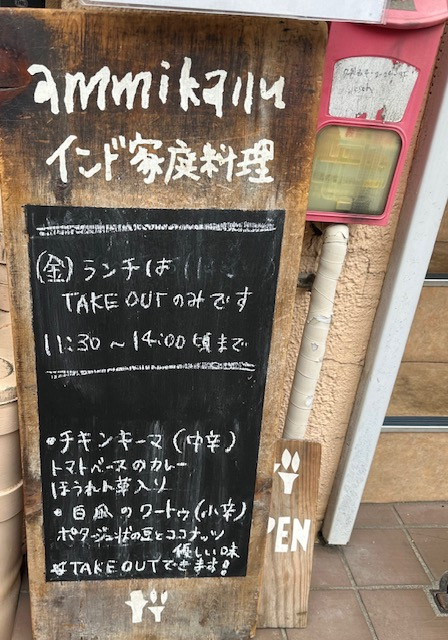 ammikallu
インド家庭料理
(金)ランチは
TAKE OUTのみです
11:30～14:00頃まで
•チキンキーマ(中辛)
トマトベースのカレー
ほうれん草入り
•白のクートゥ(小辛)
ポタージュ状の豆とココナッツ
優しい味
TAKE OUTできます!
PEN